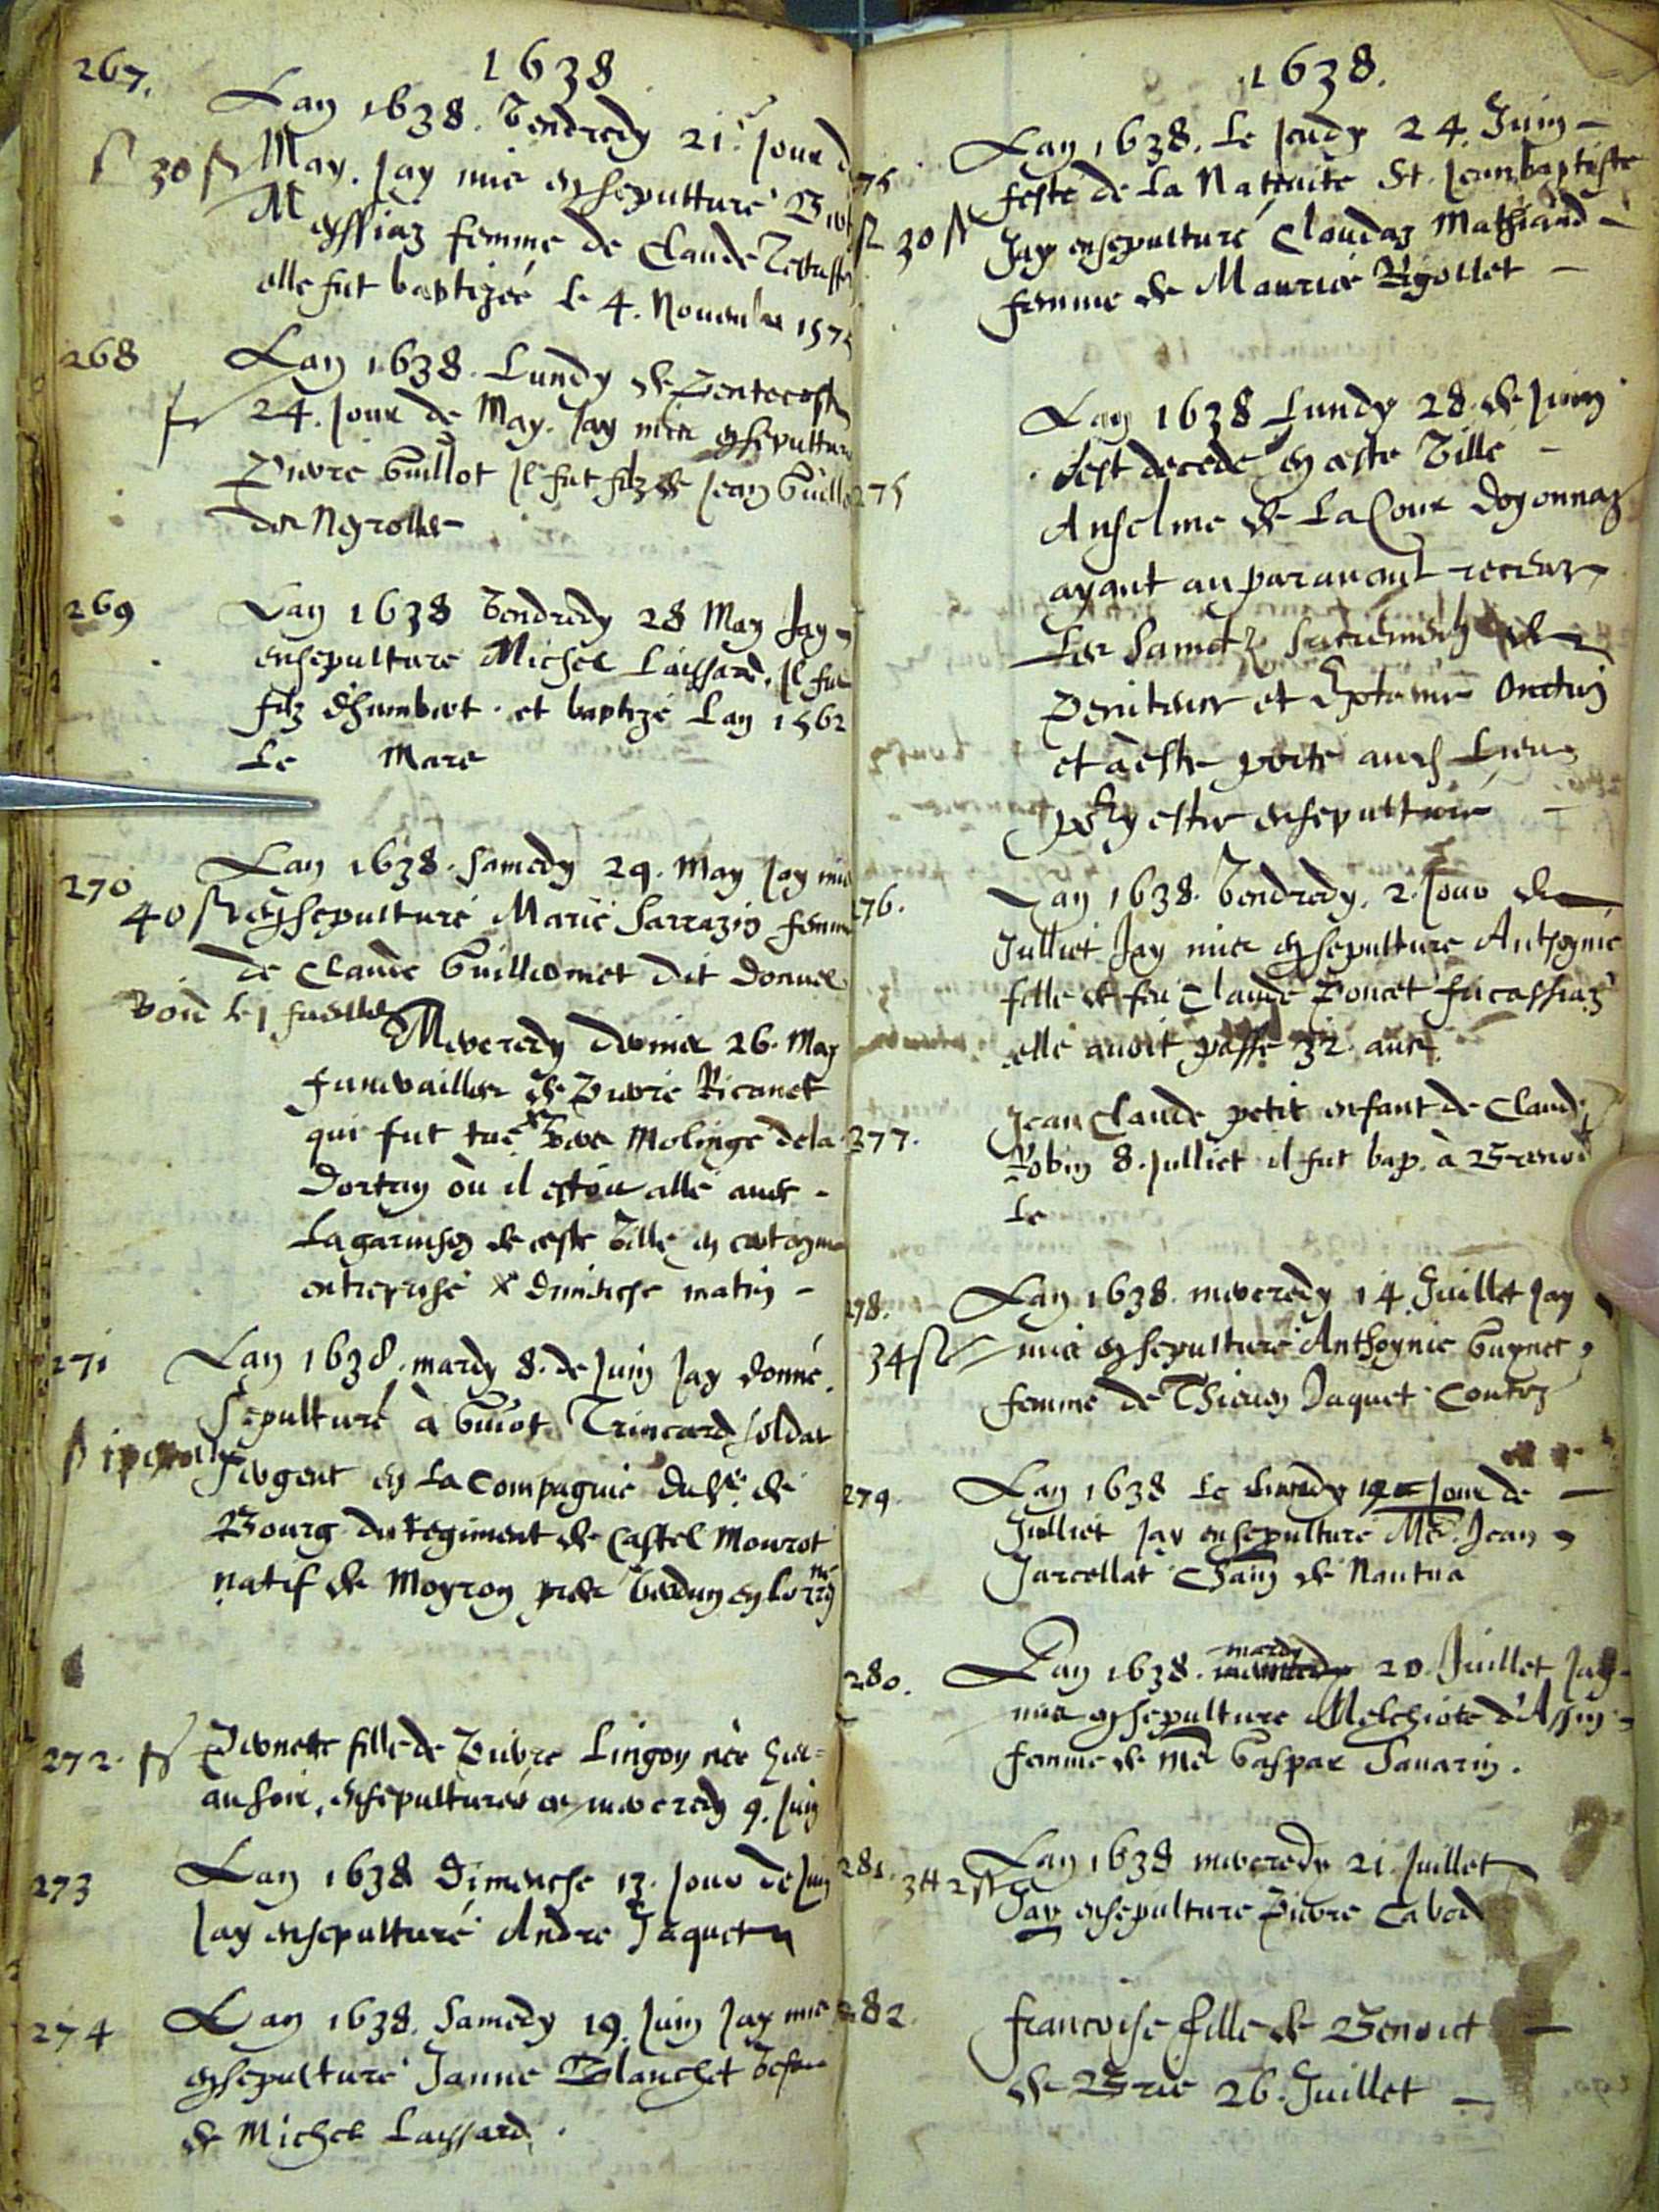 1638
267.
Lan 1638. Vendredy 21. Jour d
30 ß May. Jay mis ensepulture
Meyssiaz femme de Claude
elle fut baptizée le 4. Novembre 157
268
Lan 1638. Lundy de Pentecoste
24. Jour de May. Jay mis ensepulture
Pierre Guillot Il fut filz de Jean Guillo
des Neyrolles
269
Lan 1638 Vendredy 28 May Jay
ensepulture Michel Laissard. Il fut
filz d'humbert. et baptizé Lan 1562
Le Mars
270
Lan 1638. Samedy 29. May Jay mis
40 ß ensepulturé Marie Sarrazin femme
de Claude Guillermet dit Donnel
Mercredy dernier 26. May
funerailles de Pierre Ricanet
qui fut tué vers Molinge dela
Dortan où il estoit allé avec
La garnison de ceste Ville en certayne
entreprise x dimenche matin
271
Lan 1638. mardy 8. de Juin Jay donné
sepulturé à Guiot Trincard soldat
sergent en La Compagnie du Sr. de
Bourg du Regiment de Castel Mourot
natif de Moyron pres Verdun en Lorrne
272. Pernette fille de Pierre Lingon née hier
au soir, ensepulturée ce mercredy 9. Juin
273
Lan 1638 Dimenche 13. Jour de Juin
Jay ensepulturé Andre Jaquet
274
Lan 1638. Samedy 19. Juin Jay mis
ensepulture Janne Blanchet
de Michel Laissard.
1638.
Lan 1638. Le Jeudy 24. Juin
feste de La Nativite St. Jean baptiste
30 ß Jay ensepulturé Claudaz Mathiand
femme de Maurice Rigollet
275
Lan 1638 Lundy 28. de Juin
Sest decedé en ceste Ville
Anselme de La Cour dogonnaz
ayant auparavant receuz
Les Sainctz Sacrements de
Penitence et Extreme Onction
et à esté porté aud. Lieu
pour y estre ensepulturé
276.
Lan 1638. Vendredy. 2. Jour de
Julliet Jay mis ensepulture Anthoynie
fille de feu Claude Poncet
elle avoit passé 32. ans.
277.
Jean Claude petit enfant de Claude
Robin 8. Julliet il fut bap. à
Le
278.
Lan 1638. mercredy 14 Juillet Jay
34 ß mis ensepulture Anthoynie Guynet
femme de Thieven Jaquet
279.
Lan 1638 Le Lundy 19 Jour de
Julliet Jay ensepulture Me. Jean
Jarcellat Chan de Nantua
280.
Lan 1638. mardy 20. Juillet Jay
mis ensepulture Melchiote d'Assin
femme de Me Gaspar Savarin.
281.
Lan 1638 mercredy 21. Juillet
Jay ensepulture Pierre Cabod
282.
francoise fille de Benoict
de Brie 26. Juillet